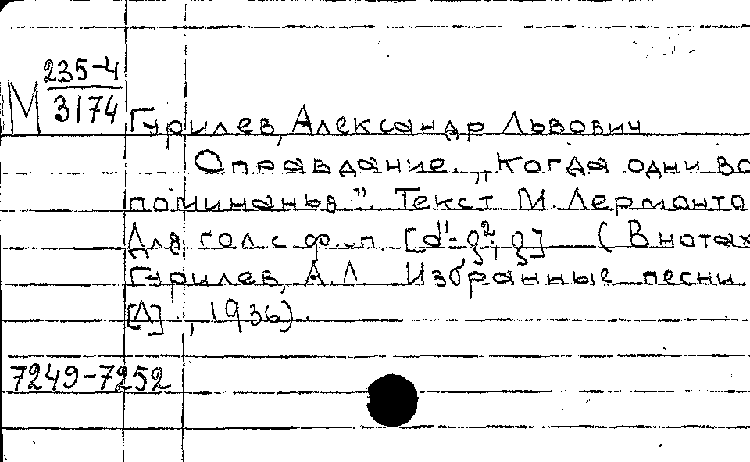 М 235-4
3174
Гурилев, Александр Львович
Оправдание. „Когда одни во
поминанья". Текст М. Лермонто
Для гол. с ф.-п. [d¹-g²; g] (В нотах
Гурилев, А.Л. Избранные песни.
[Л]., 1936).
7249-7252